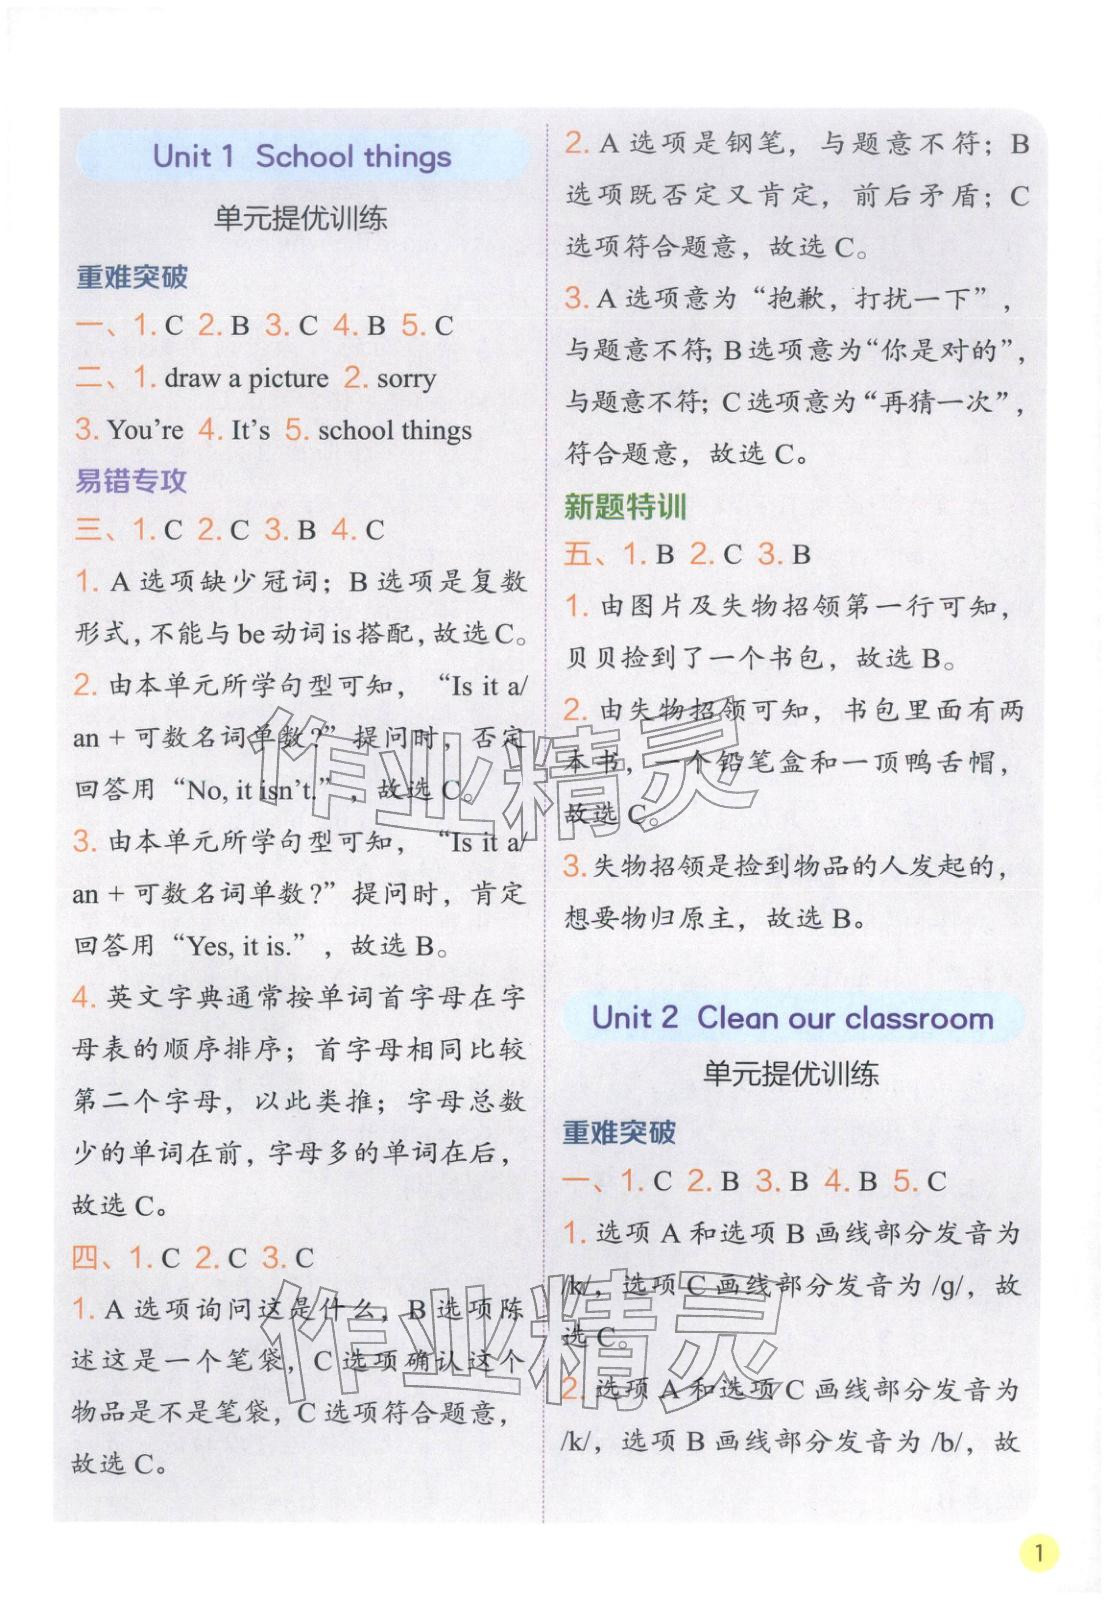 Unit 1 School things
单元提优训练
重难突破
一、1. C 2. B 3. C 4. B 5. C
二、1. draw a picture 2. sorry
3. You're 4. It's 5. school things
易错专攻
三、1. C 2. C 3. B 4. C
1. A 选项缺少冠词；B 选项是复数
形式，不能与 be 动词 is 搭配，故选 C。
2. 由本单元所学句型可知，“Is it a/
an + 可数名词单数？”提问时，否定
回答用“No, it isn't.”，故选 C。
3. 由本单元所学句型可知，“Is it a/
an + 可数名词单数？”提问时，肯定
回答用“Yes, it is.”，故选 B。
4. 英文字典通常按单词首字母在字
母表的顺序排序；首字母相同比较
第二个字母，以此类推；字母总数
少的单词在前，字母多的单词在后，
故选 C。
四、1. C 2. C 3. C
1. A 选项询问这是什么，B 选项陈
述这是一个笔袋，C 选项确认这个
物品是不是笔袋，C 选项符合题意，
故选 C。
2. A 选项是钢笔，与题意不符；B
选项既否定又肯定，前后矛盾；C
选项符合题意，故选 C。
3. A 选项意为“抱歉，打扰一下”，
与题意不符；B 选项意为“你是对的”，
与题意不符；C 选项意为“再猜一次”，
符合题意，故选 C。
新题特训
五、1. B 2. C 3. B
1. 由图片及失物招领第一行可知，
贝贝捡到了一个书包，故选 B。
2. 由失物招领可知，书包里面有两
本书，一个铅笔盒和一顶鸭舌帽，
故选 C。
3. 失物招领是捡到物品的人发起的，
想要物归原主，故选 B。
Unit 2 Clean our classroom
单元提优训练
重难突破
一、1. C 2. B 3. B 4. B 5. C
1. 选项 A 和选项 B 画线部分发音为
/k/，选项 C 画线部分发音为 /g/，故
选 C。
2. 选项 A 和选项 C 画线部分发音为
/k/，选项 B 画线部分发音为 /b/，故
1
作业精灵
作业精灵